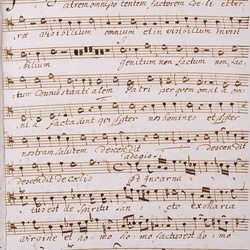 atrem omnipo tentem factorem Coeli et ter
rae visibilium omnium et in visibilium In visi
bilium genitum non factum non fac
tum Consubstanti alem Patri per quem omnia om
nia facta sunt qui propter nos homines et propter
nostram salutem Descendit descendit
descendit De Coelis adagio et Incarna
tus est de Spiritu san cto ex Maria
virgine et ho mo ho mo factus est ho